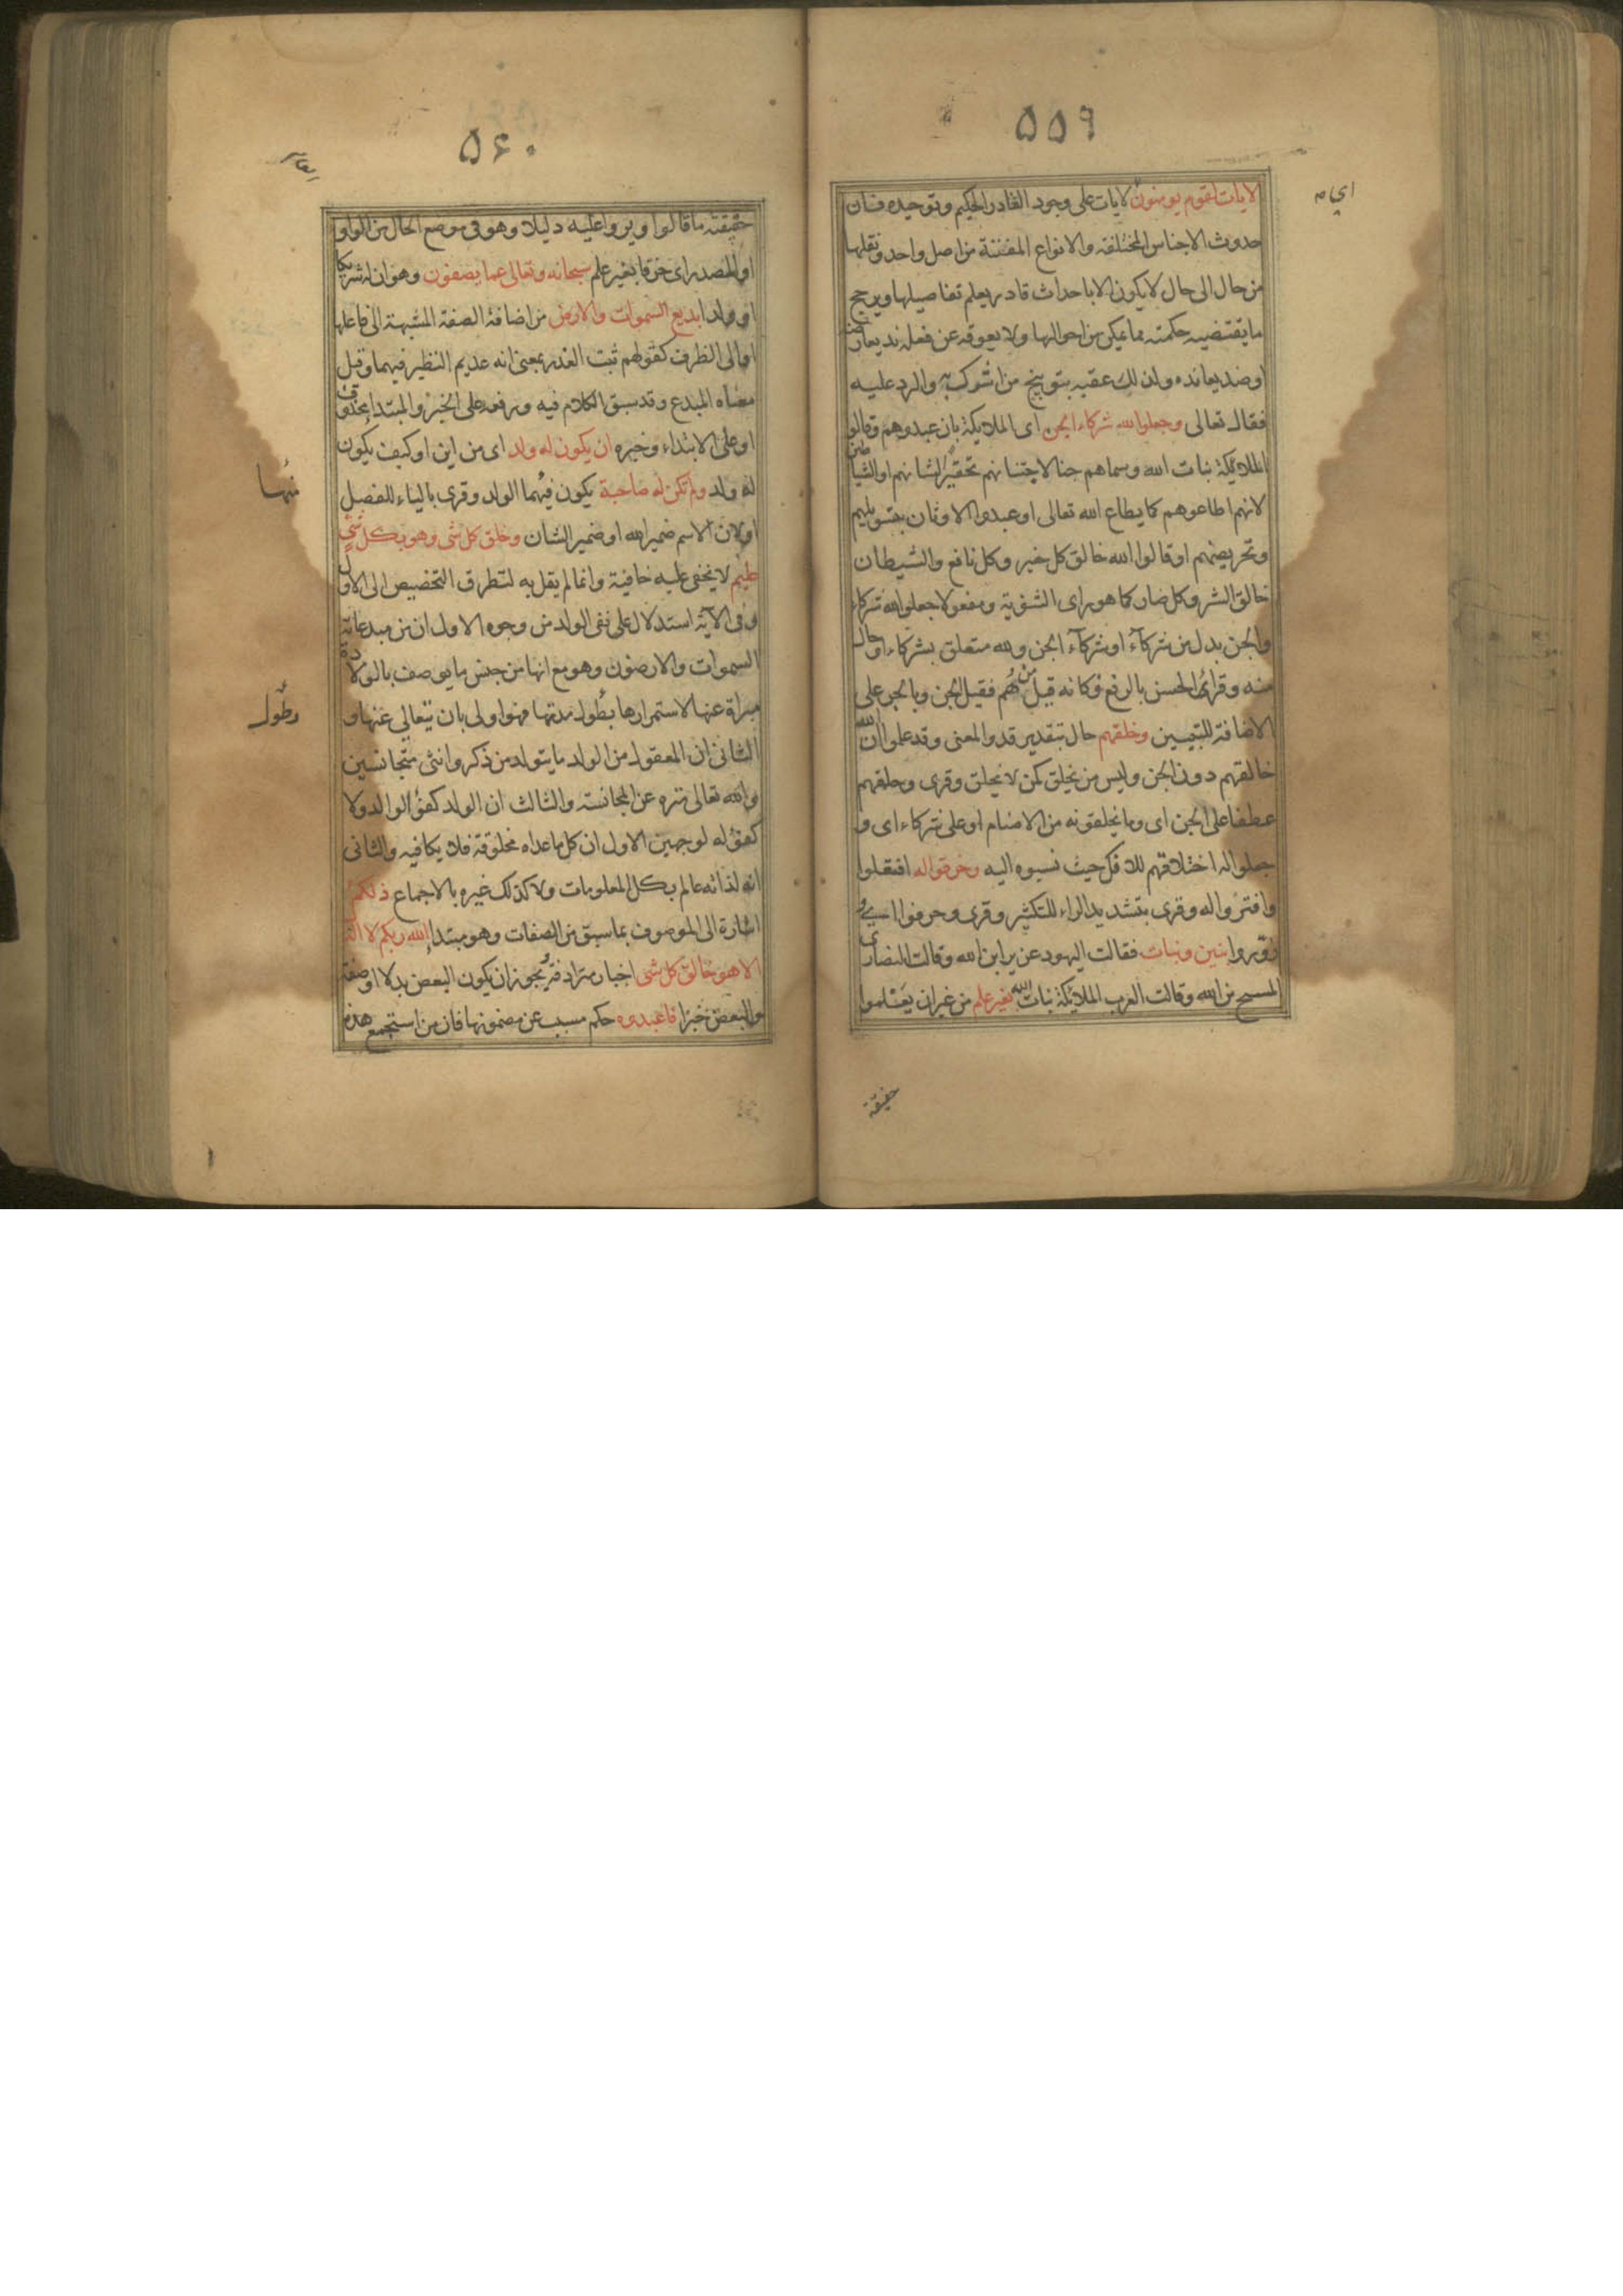 ۵۵۹
لايات لقوم يومنون لايات على وجود القادر الحكيم وتوحيده فان
حدوث الاجناس المختلفة والانواع المفتنة من اصل واحد ونقلها
من حال الى حال لا يكون الا باحداث قادر يعلم تفاصيلها ويرجح
ما يقتضيه حكمته مما يمكن من احوالها ولا يعوقه عن فعله ند يعارضه
او ضد يعانده ولذلك عقبه بتوبيخ من اشرك به والرد عليه
فقال تعالى وجعلوا لله شركاء الجن اى الملايكة بان عبدوهم وقالوا
الملائكة بنات الله وسماهم جنا لاجتنانهم تحقيرا لشانهم او الشياطين
لانهم اطاعوهم كما يطاع الله تعالى او عبدوا الاوثان بتسويلهم
وتحريضهم او قالوا الله خالق كل خير وكل نافع والشيطان
خالق الشر وكل ضار كما هو راى الثنوية ومفعولا جعلوا لله شركاء
والجن بدل من شركآء او شركآء الجن ولله متعلق بشركاء او حال
منه وقرئ الجن بالرفع فكانه قيل من هم فقيل الجن وبالجر على
الاضافة للتبيين وخلقهم حال بتقدير قد والمعنى وقد علموا ان الله
خالقهم دون الجن وليس من يخلق كمن لا يخلق وقرى وخلقهم
عطفا على الجن اى وما يخلقونه من الاصنام او على شركاء اى و
جعلوا له اختلاقهم للافك حيث نسبوه اليه وخرقوا له افتعلوا
وافتروا له وقرى بتشديد الراء للتكثير وقرى وحرفوا اى و
زوروا بنين وبنات فقالت اليهود عزير ابن الله وقالت النصارى
المسيح بن الله وقالت العرب الملائكة بنات الله بغير علم من غير ان يعلموا
حقيقة
۵۶۰
حقيقة ما قالوا ويروا عليه دليلا وهو فى موضع الحال من الواو
او المصدر اى خرقا بغير علم سبحانه وتعالى عما يصفون وهو ان له شريكا
او ولدا بديع السموات والارض من اضافة الصفة المشبهة الى فاعلها
او الى الظرف كقولهم ثبت الغدر بمعنى انه عديم النظير فيهما وقيل
معناه المبدع وقد سبق الكلام فيه ورفعه على الخبر والمبتدا محذوف
او على الابتداء وخبره ان يكون له ولد اى من اين او كيف يكون
له ولد ولم تكن له صاحبة يكون فيهما الولد وقرى بالياء للفصل
او لان الاسم ضمير الله او ضمير الشان وخلق كل شى وهو بكل شئ
عليم لا يخفى عليه خافية وانما لم يقل به لتطرق التخصيص الى الاول
وفى الآية استدلال على نفى الولد من وجوه الاول ان من مبدعاته
السموات والارضون وهو مع انها من جنس ما يوصف بالولادة
مبراة عنها لاستمرارها بطول مدتها فهو اولى بان يتعالى عنها و
الثانى ان المعقول من الولد ما يتولد من ذكر وانثى متجانسين
والله تعالى منزه عن المجانسة والثالث ان الولد كفؤ الوالد ولا
كفؤ له لوجهين الاول ان كل ما عداه مخلوقة فلا يكافيه والثانى
انه لذاته عالم بكل المعلومات ولا كذلك غيره بالاجماع ذلكم
اشارة الى الموصوف بما سبق من الصفات وهو مبتدا الله ربكم لا اله
الا هو خالق كل شى اخبار مترادفة يجوز ان يكون البعض بدلا او صفة
والبعض خبرا فاعبدوه حكم مسبب عن مضمونها فان من استجمع هذه
منها
وطول